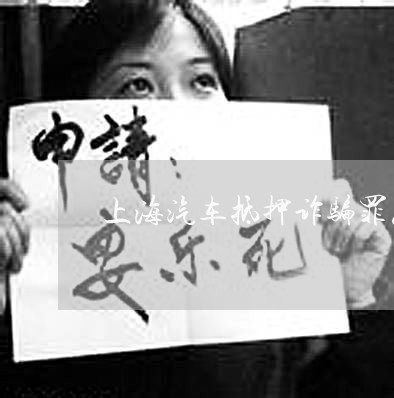 申請：
上海汽车抵押诈骗罪
安乐死